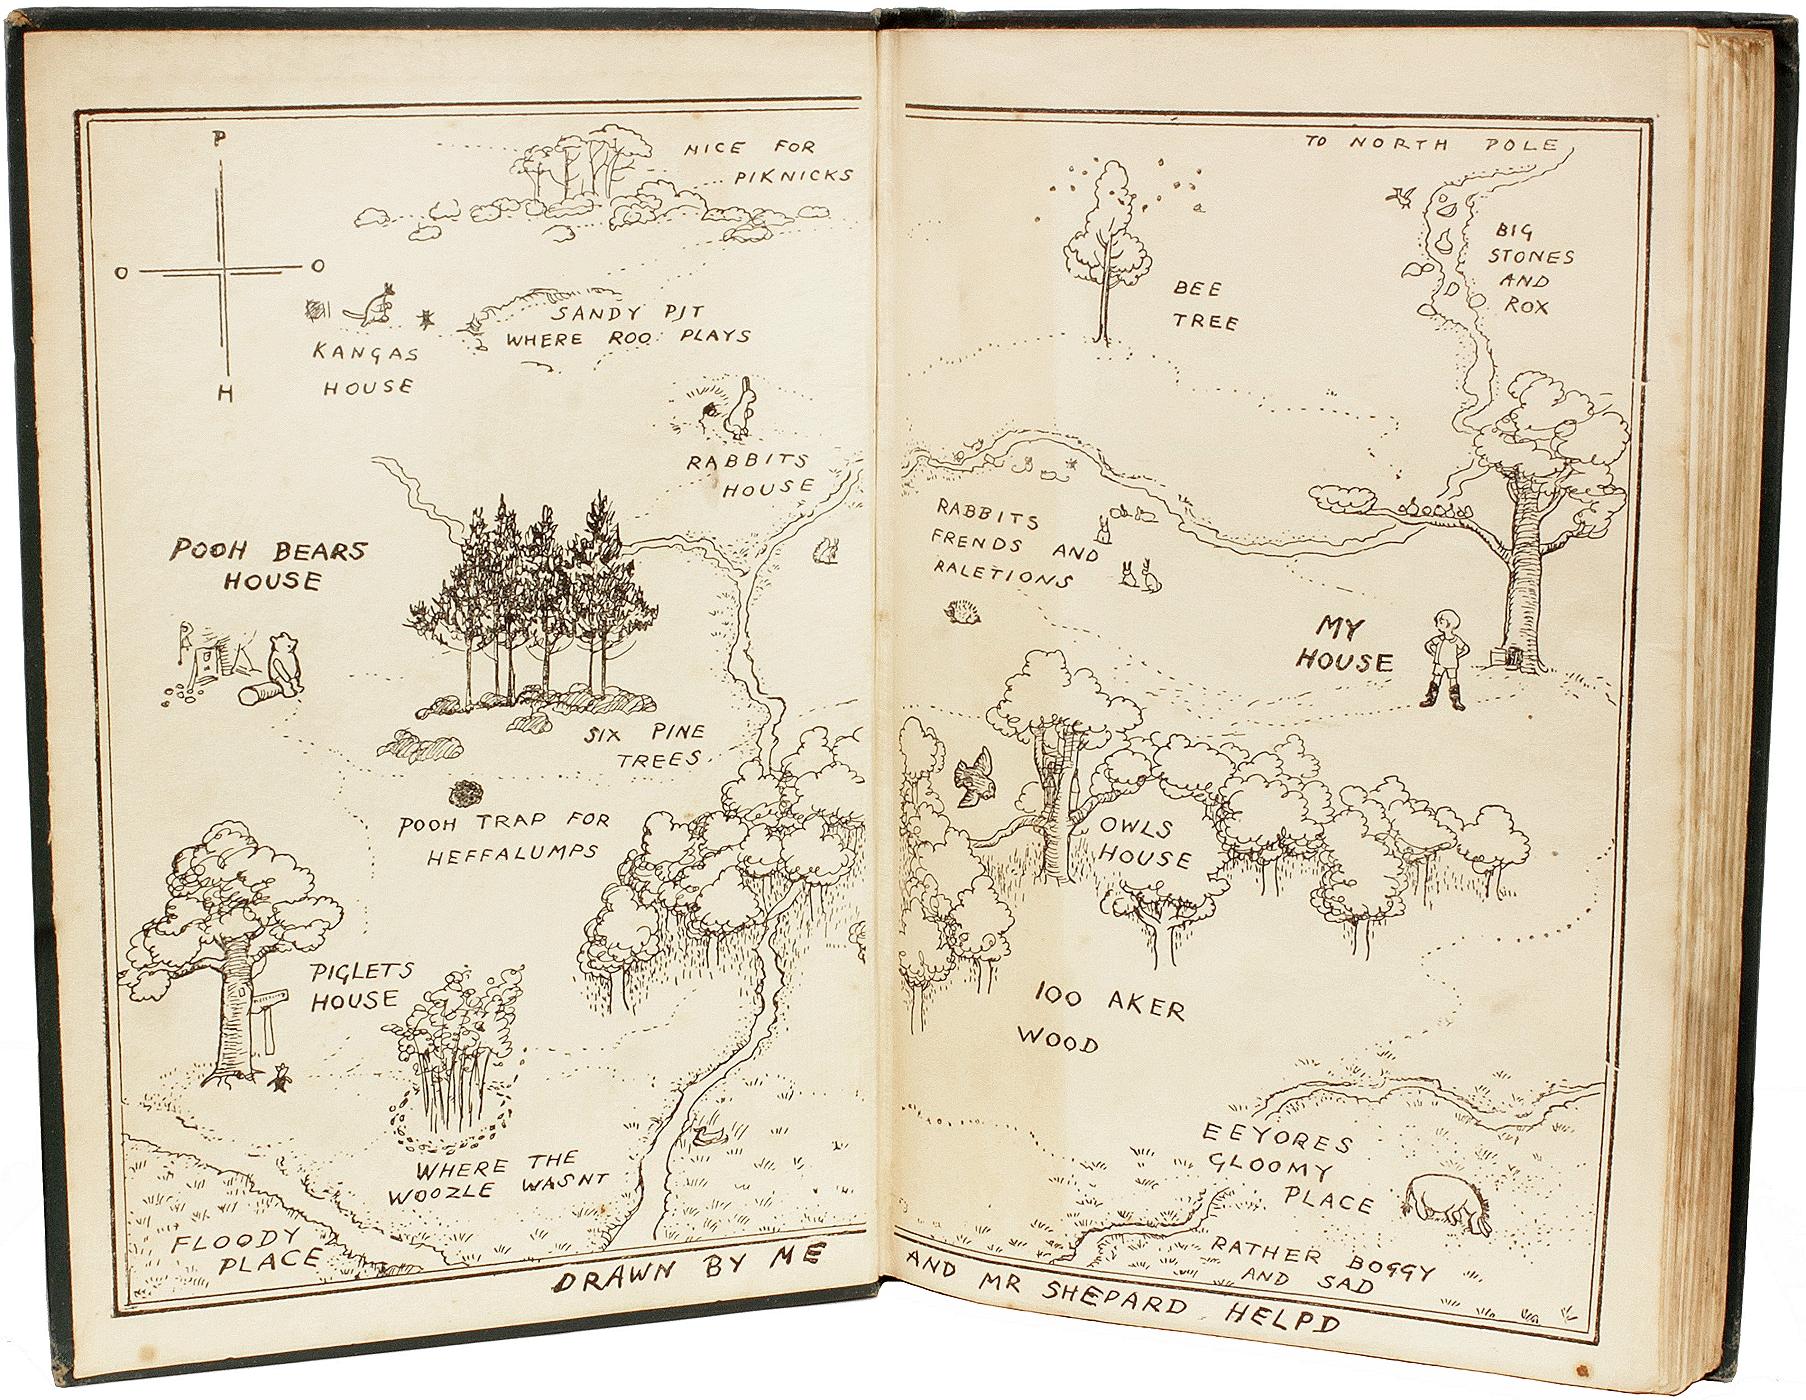 P
O O
H
NICE FOR
PIKNICKS
KANGAS
HOUSE
SANDY PIT
WHERE ROO PLAYS
RABBITS
HOUSE
POOH BEARS
HOUSE
SIX PINE
TREES.
POOH TRAP FOR
HEFFALUMPS
PIGLETS
HOUSE
WHERE THE
WOOZLE WASNT
FLOODY
PLACE
DRAWN BY ME
TO NORTH POLE
BEE
TREE
BIG
STONES
AND
ROX
RABBITS
FRENDS AND
RALETIONS
MY
HOUSE
OWLS
HOUSE
100 AKER
WOOD
EEYORES
GLOOMY
PLACE
RATHER BOGGY
AND SAD
AND MR SHEPARD HELPD